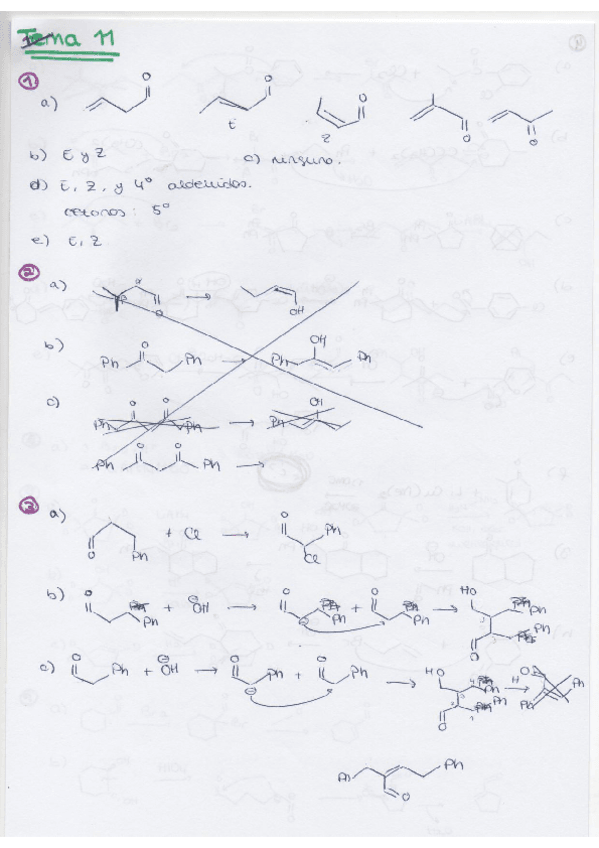 Tema 11
1
a) O O O O O
E Z
b) E y Z c) ninguno.
d) E, Z, y 4º aldehidos.
cetonas: 5º
e) E, Z
2
a) O → OH
b) Ph O Ph → Ph OH Ph
c) Ph O O Ph → Ph OH
Ph O O Ph →
3
a) O Ph + Cl → O Ph Cl
b) O Ph + OH → O Ph + O Ph → HO Ph Ph O
c) O Ph + OH → O Ph + O Ph → HO Ph Ph O → Ph Ph
Ph Ph O